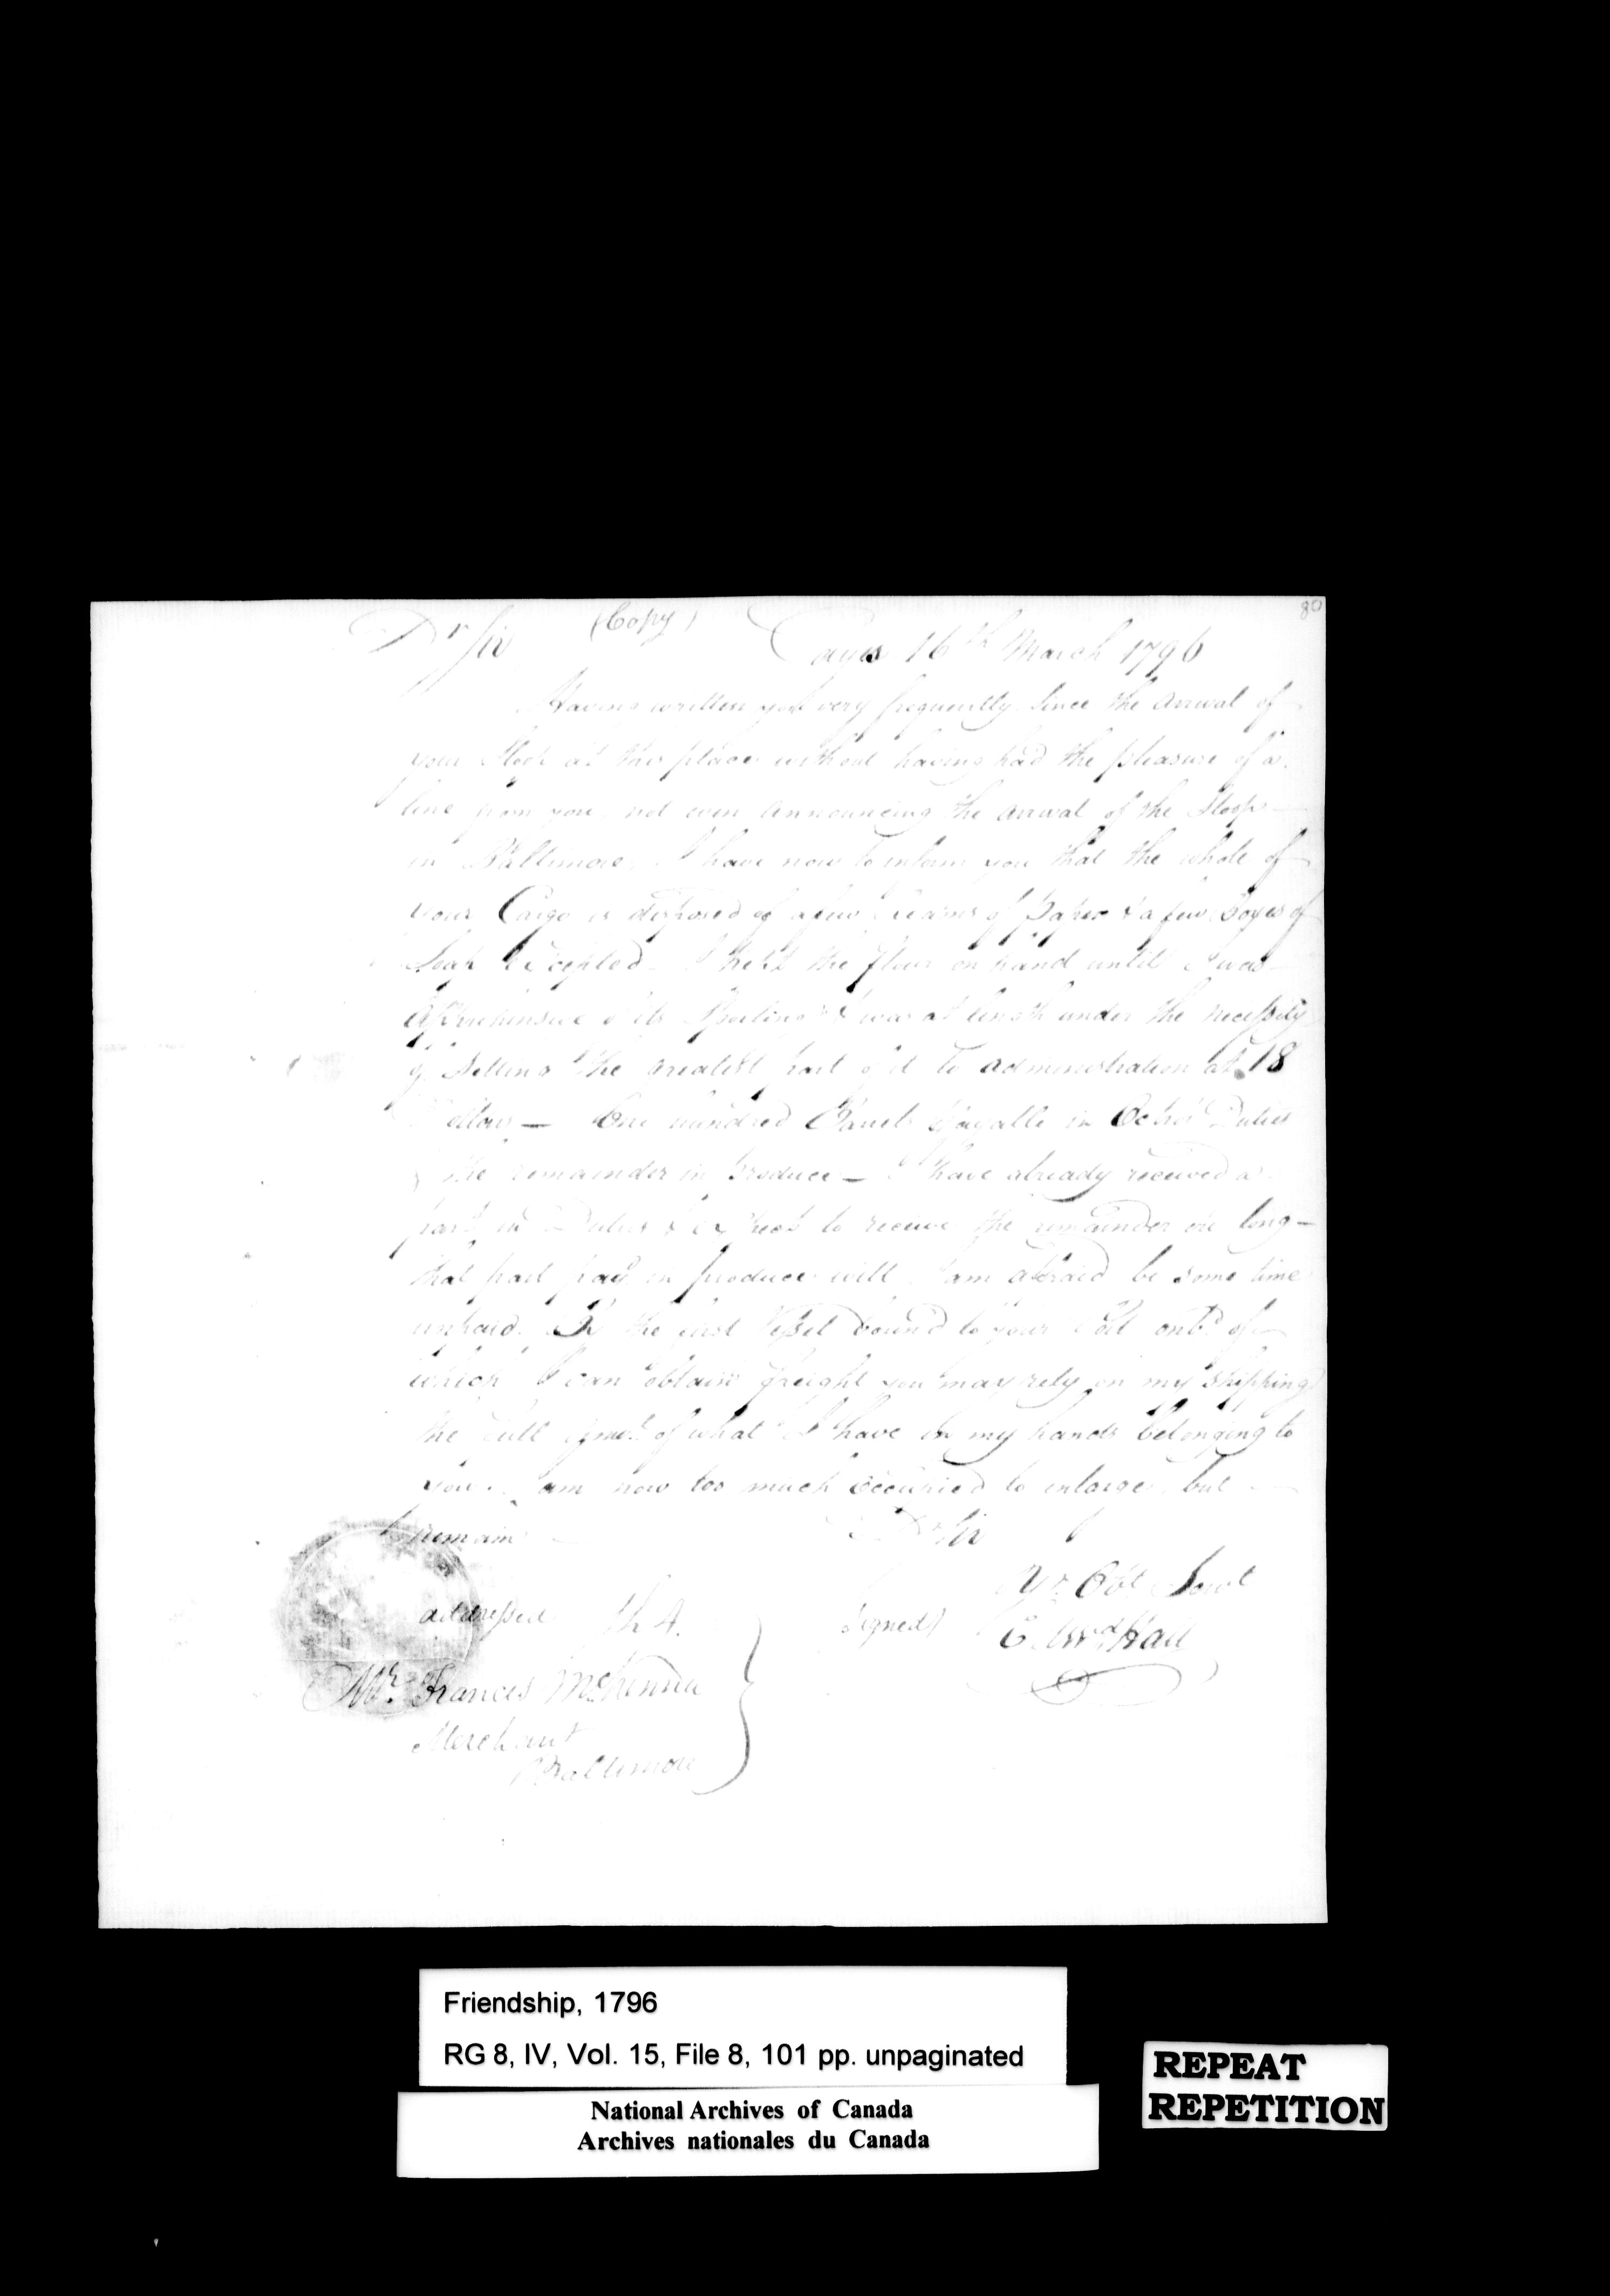 80
(Copy)
Dr Sir Cayes 16th March 1796
Having written you very frequently since the arrival of
your Sloop at this place without having had the pleasure of a
line from you, not even announcing the arrival of the Sloop
in Baltimore, I have now to inform you that the whole of
your Cargo is disposed of a few Reams of Paper & a few boxes of
Soap Excepted - I kept the flour on hand until I was
apprehensive of its Spoiling & was at length under the necessity
of Selling the greatest part of it to administration at 18
Dollars — One hundred Barrels payable in Duties
& the remainder in produce — I have already received a
part in Duties & expect to receive the remainder ere long —
that part pay in produce will I am afraid be some time
unpaid. By the first Vessel bound to your Port onbd of
which I can obtain freight you may rely on my shipping
the full amot of what I have in my hands belonging to
you. I am now too much occupied to enlarge but
remain Dr Sir
Yr Obt Servt
addressed Signed) Hall
Mr. Frances McKenna
Merchant
Baltimore
Friendship, 1796
RG 8, IV, Vol. 15, File 8, 101 pp. unpaginated
National Archives of Canada
Archives nationales du Canada
REPEAT
REPETITION